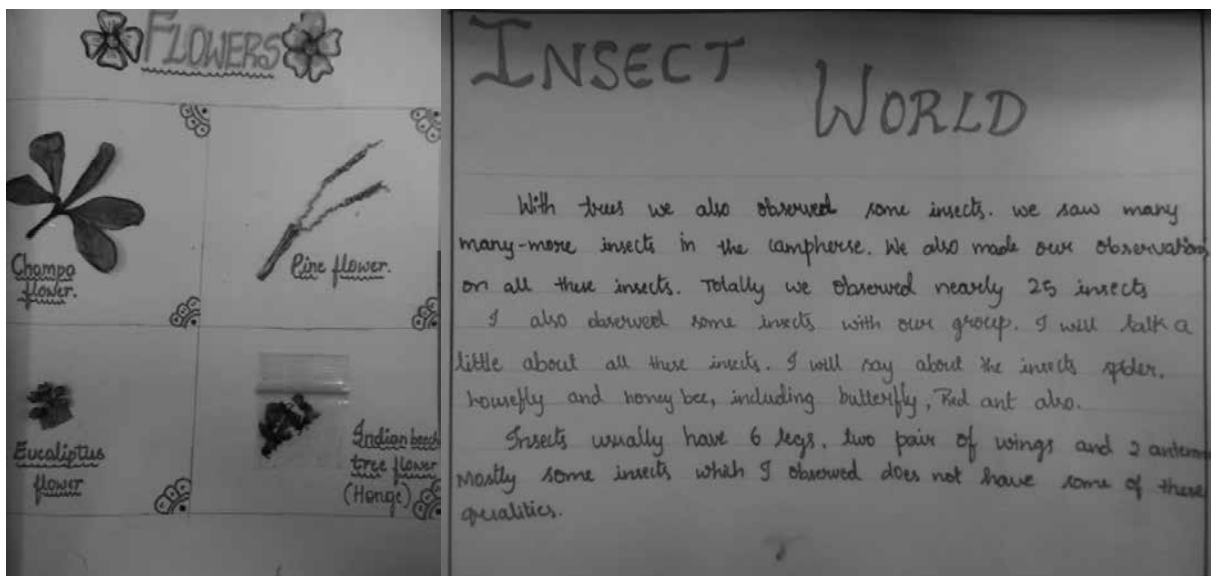 FLOWERS
Champa
flower.
Pine flower.
Eucaliptus
flower
Indian beech
tree flower
(Honge)
INSECT
WORLD
With trees we also observed some insects. we saw many
many-more insects in the campherse. We also made our observations
on all these insects. Totally we observed nearly 25 insects
I also observed some insects with our group. I will talk a
little about all these insects. I will say about the insects spider,
housefly and honey bee, including butterfly, Red ant also.
Insects usually have 6 legs, two pair of wings and 2
Mostly some insects which I observed does not have some of these
qualities.